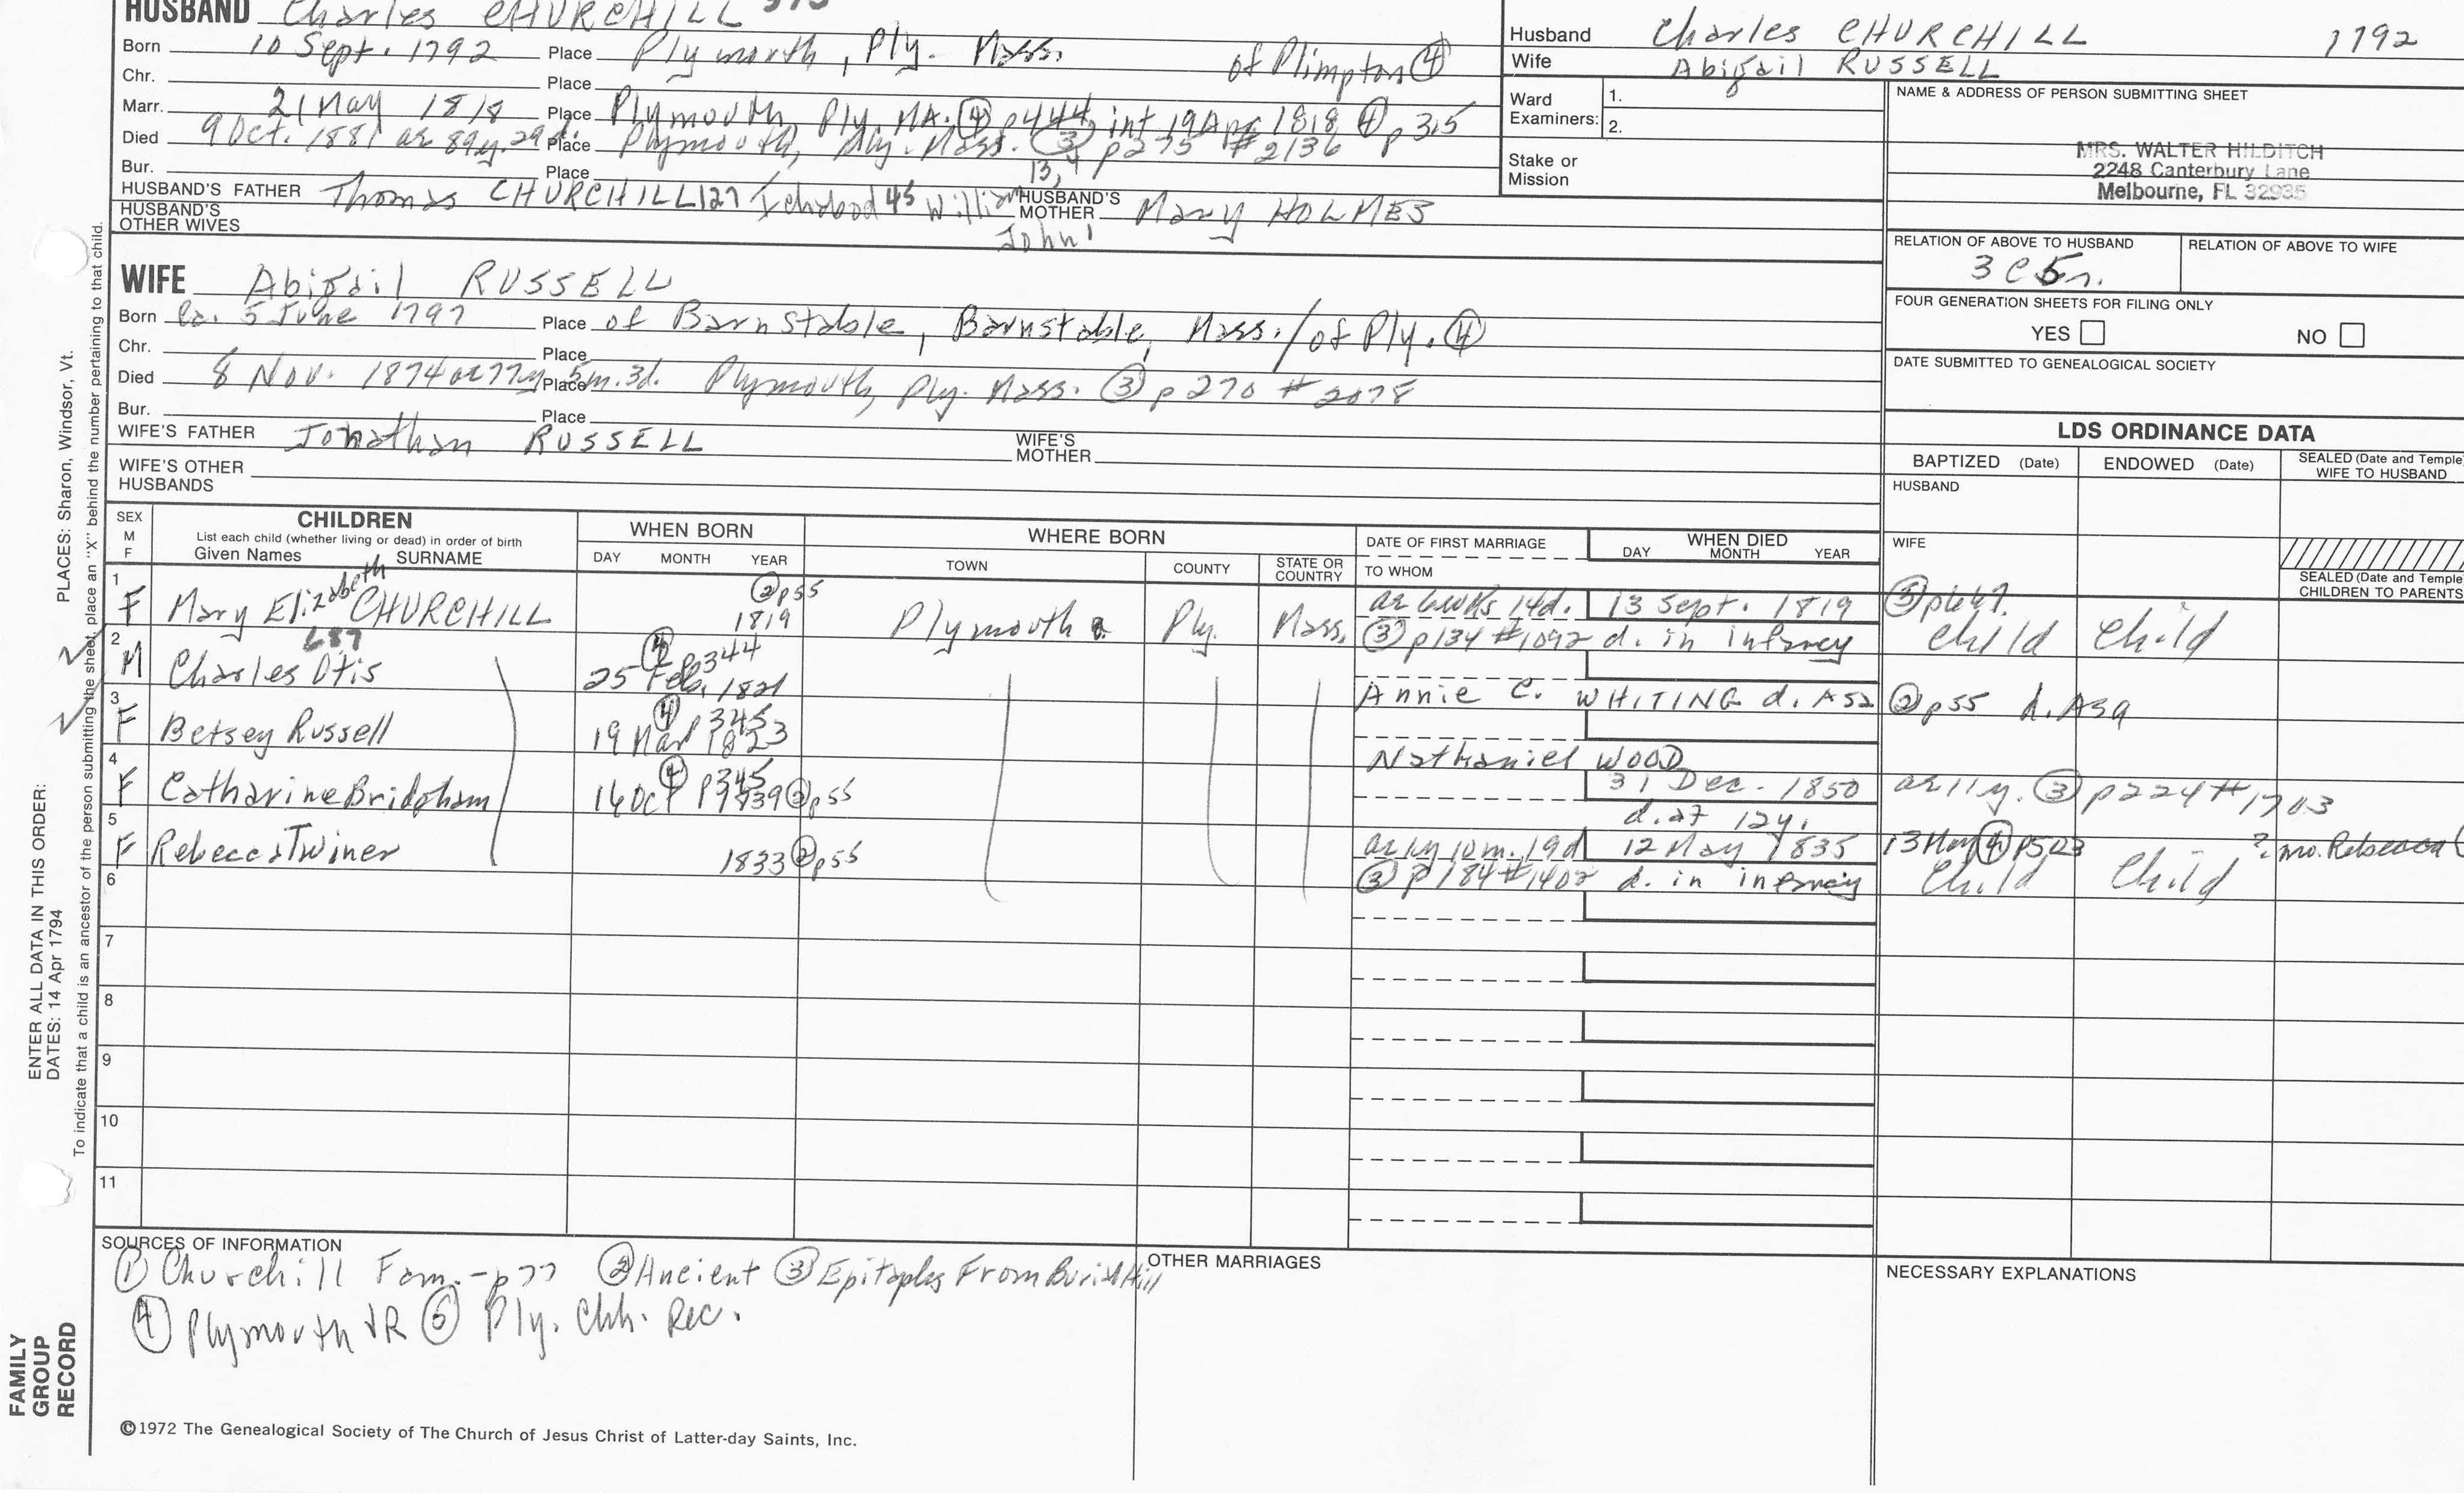 HUSBAND Charles CHURCHILL
Born 10 Sept. 1792 Place Plymouth, Ply. Mass. of Plimpton ④
Chr. Place
Marr. 21 May 1818 Place Plymouth, Ply. MA. ④ p444 int 19 Apr 1818 ④ p315
Died 9 Oct. 1881 ae 89y. 29d. Place Plymouth, Ply. Mass. ③ p275 #2136
Bur. Place
HUSBAND'S FATHER Thomas CHURCHILL 127 Ichabod 45 William 13, 4 John 1 HUSBAND'S MOTHER Mary HOLMES
HUSBAND'S OTHER WIVES
Husband Charles CHURCHILL 1792
Wife Abigail RUSSELL
Ward Examiners: 1.
2.
Stake or Mission
NAME & ADDRESS OF PERSON SUBMITTING SHEET
MRS. WALTER HILDITCH
2248 Canterbury Lane
Melbourne, FL 32935
RELATION OF ABOVE TO HUSBAND
3C5r.
RELATION OF ABOVE TO WIFE
FOUR GENERATION SHEETS FOR FILING ONLY
YES NO
DATE SUBMITTED TO GENEALOGICAL SOCIETY
WIFE Abigail RUSSELL
Born ca. 5 June 1797 Place of Barnstable, Barnstable, Mass./of Ply. ④
Chr. Place
Died 8 Nov. 1874 ae 77y 5m. 3d. Place Plymouth, Ply. Mass. ③ p270 #2078
Bur. Place
WIFE'S FATHER Jonathan RUSSELL WIFE'S MOTHER
WIFE'S OTHER HUSBANDS
LDS ORDINANCE DATA
BAPTIZED (Date) ENDOWED (Date) SEALED (Date and Temple
WIFE TO HUSBAND
HUSBAND
WIFE
SEALED (Date and Temple
CHILDREN TO PARENTS
SEX M F
CHILDREN
List each child (whether living or dead) in order of birth
Given Names SURNAME
WHEN BORN
DAY MONTH YEAR
WHERE BORN
TOWN COUNTY STATE OR COUNTRY
DATE OF FIRST MARRIAGE
TO WHOM
WHEN DIED
DAY MONTH YEAR
1 F Mary Elizabeth CHURCHILL ② p55 1819 Plymouth Ply. Mass. ae 6wks 14d. 13 Sept. 1819
③ p134 #1092 d. in infancy child child
2 M Charles Otis 687 25 Feb. 1821 ④ p344
Annie C. WHITING d. Asa ② p55 d. Asa
3 F Betsey Russell 19 Mar 1823 ④ p345
Nathaniel WOOD
4 F Catharine Bridgham 16 Oct 1839 ④ p345 ② p55 31 Dec. 1850 ae 11y. ③ p224 #1703
d. at 12y.
5 F Rebecca Twiner 1833 ② p55 ae 1y 10m. 19d 12 May 1835 13 May ④ p523 ? mo. Rebecca
③ p184 #1402 d. in infancy child child
6
7
8
9
10
11
SOURCES OF INFORMATION
① Churchill Fam.-p77 ② Ancient ③ Epitaphs From Burial Hill
④ Plymouth VR ⑤ Ply. Chh. Rec.
OTHER MARRIAGES
NECESSARY EXPLANATIONS
©1972 The Genealogical Society of The Church of Jesus Christ of Latter-day Saints, Inc.
FAMILY GROUP RECORD
ENTER ALL DATA IN THIS ORDER:
DATES: 14 Apr 1794
PLACES: Sharon, Windsor, Vt.
To indicate that a child is an ancestor of the person submitting the sheet, place an "X" behind the number pertaining to that child.